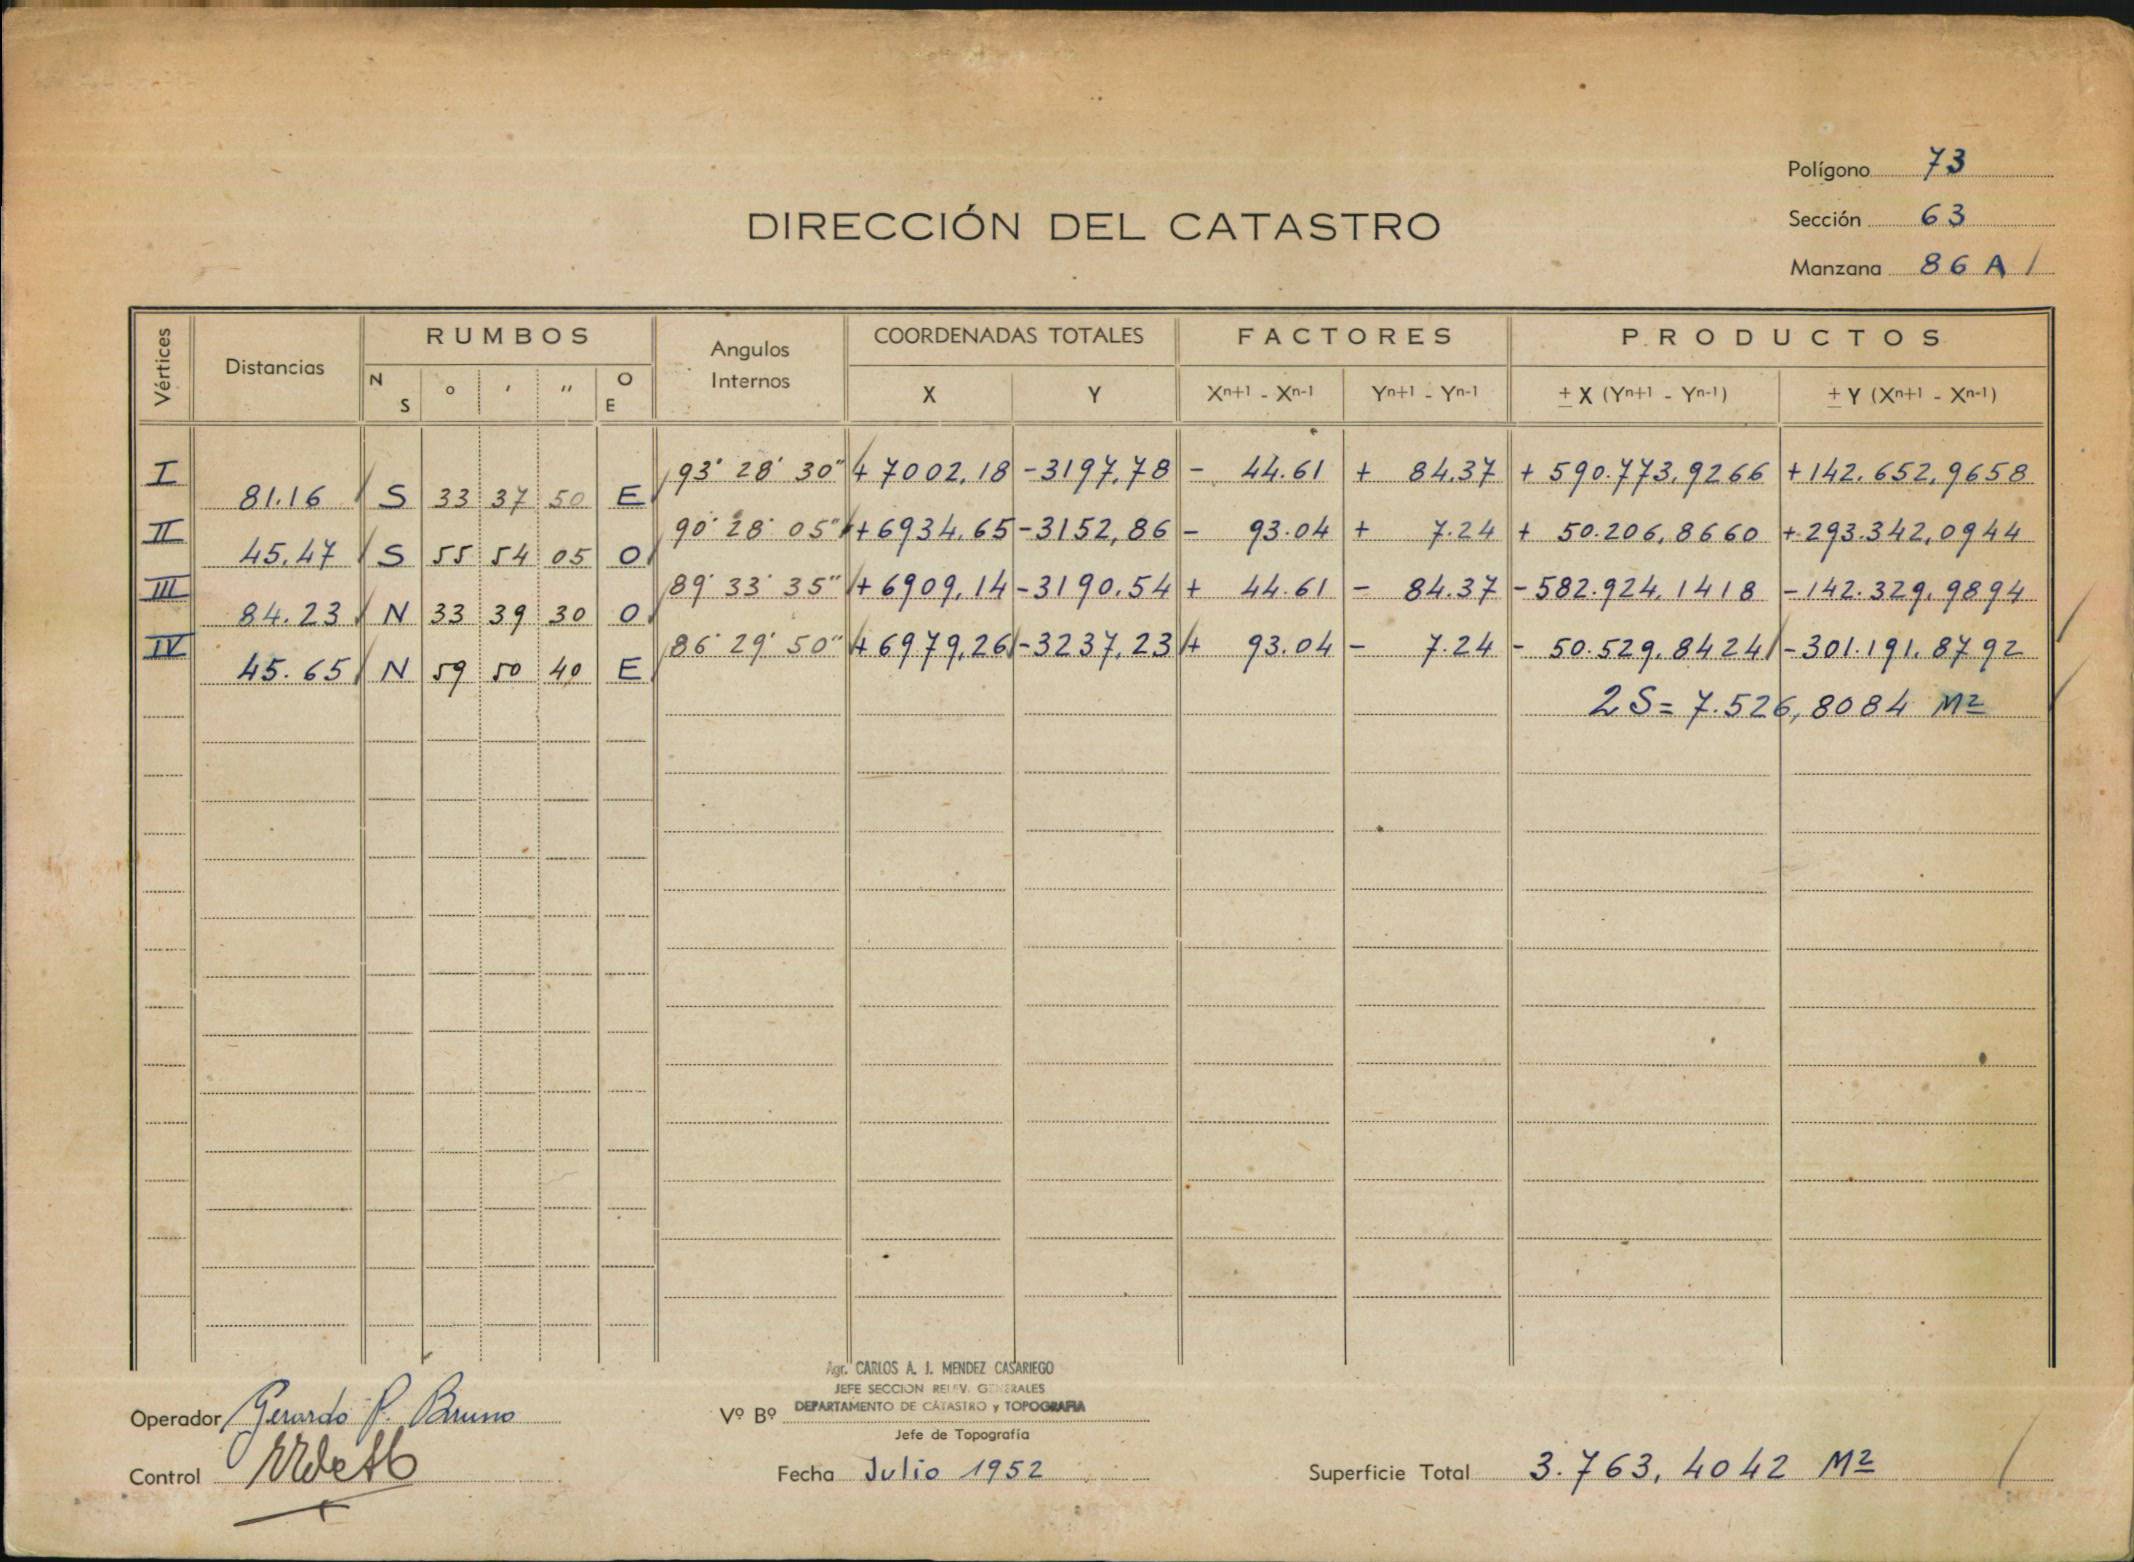 Polígono 73
DIRECCIÓN DEL CATASTRO
Sección 63
Manzana 86 A /
Vértices Distancias RUMBOS Angulos Internos COORDENADAS TOTALES FACTORES PRODUCTOS
N S ° ' " O E X Y Xn+1 - Xn-1 Yn+1 - Yn-1 ± X (Yn+1 - Yn-1) ± Y (Xn+1 - Xn-1)
I 93° 28' 30" + 7002,18 -3197,78 - 44.61 + 84,37 + 590.773,9266 +142.652,9658
81.16 S 33 37 50 E
II 90° 28' 05" +6934,65 -3152,86 - 93.04 + 7.24 + 50.206,8660 +293.342,0944
45,47 S 55 54 05 O
III 89° 33' 35" +6909,14 -3190,54 + 44.61 - 84.37 -582.924,1418 -142.329,9894
84.23 N 33 39 30 O
IV 86° 29' 50" +6979,26 -3237,23 + 93.04 - 7.24 - 50.529,8424 -301.191,8792
45.65 N 59 50 40 E
2S= 7.526,8084 M2
Agr. CARLOS A. J. MENDEZ CASARIEGO
JEFE SECCION RELEV. GENERALES
DEPARTAMENTO DE CATASTRO y TOPOGRAFIA
Operador Gerardo P. Bruno Vº Bº
Jefe de Topografía
Control Fecha Julio 1952 Superficie Total 3.763,4042 M2